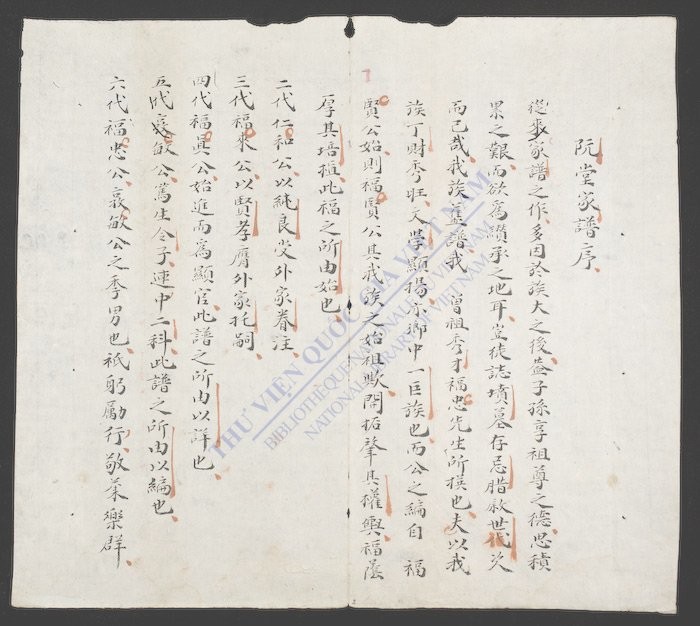 阮堂家譜序
從來家譜之作多因於族大之後盖子孫享祖尊之德思積
累之艱而欲爲纘承之地耳豈徒誌墳墓存忌腊叙世代次
而已哉我族舊譜我 曾祖秀才福忠先生所撰也夫以我
族丁財秀旺文學顯揚亦鄉中一巨族也而公之編自 福
賢公始則福賢公其我族之始祖歟開拓肇其權輿福蔭
厚其培植此福之所由始也
二代仁和公以純良受外家眷注
三代福來公以賢孝膺外家托嗣
四代福眞公始進而爲顯官此譜之所由以詳也
五代衮敏公篤生令子連中二科此譜之所由以編也
六代福忠公衮敏公之季男也祗躬勵行敬業樂群
THƯ VIỆN QUỐC GIA VIỆT NAM
BIBLIOTHÈQUE NATIONALE DU VIETNAM
NATIONAL LIBRARY OF VIETNAM